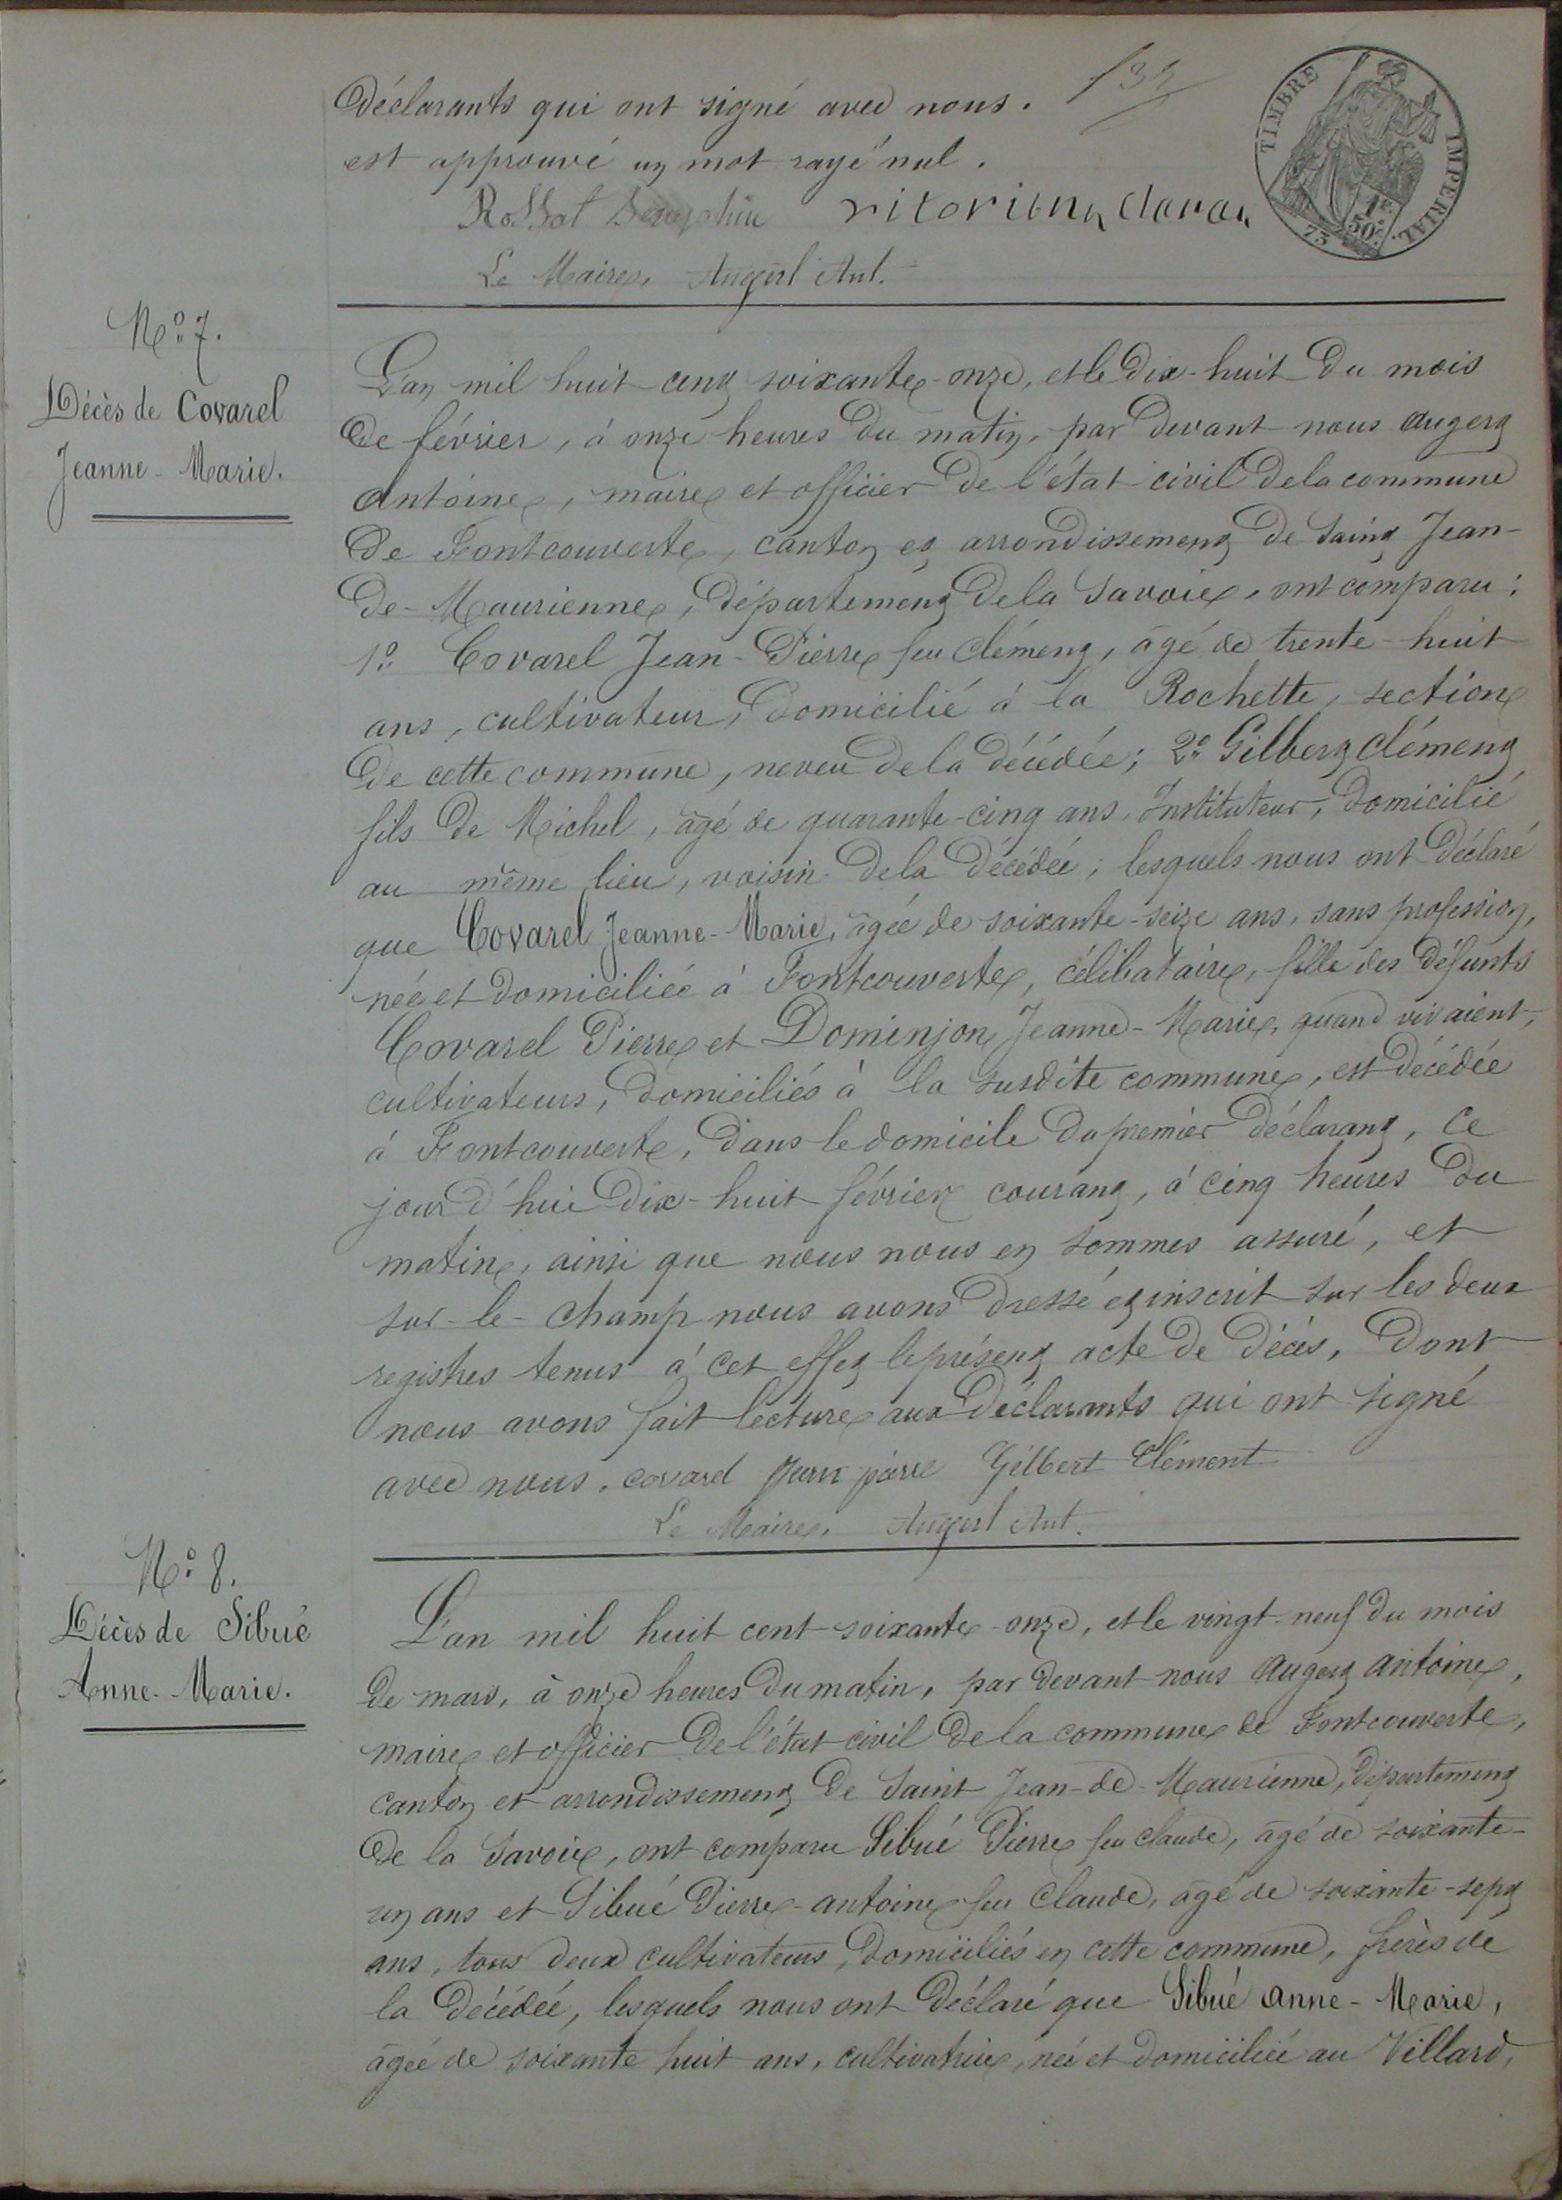 déclarants qui ont signé avec nous.
est approuvé un mot rayé nul.
TIMBRE IMPERIAL.
1F 50C
73
Rossat
Le Maire, Augert Ant.
No 7.
Décès de Covarel
Jeanne-Marie.
L'an mil huit cent soixante-onze, et le dix-huit du mois
de février, à onze heures du matin, par devant nous Augert
Antoine, maire et officier de l'état civil de la commune
de Fontcouverte, canton et arrondissement de Saint Jean-
de-Maurienne, département de la Savoie, ont comparu:
1o Covarel Jean-Pierre feu Clément, âgé de trente-huit
ans, cultivateur, domicilié à la Rochette, section
de cette commune, neveu de la décédée; 2o Gilbert Clément
fils de Michel, âgé de quarante-cinq ans, Instituteur, domicilié
au même lieu, voisin de la décédée; lesquels nous ont déclaré
que Covarel Jeanne-Marie, âgée de soixante-seize ans, sans profession,
née et domiciliée à Fontcouverte, célibataire, fille des défunts
Covarel Pierre et Dominjon Jeanne-Marie, quand vivaient,
cultivateurs, domiciliés à la susdite commune, est décédée
à Fontcouverte, dans le domicile du premier déclarant, ce
jourd'hui dix-huit février courant, à cinq heures du
matin, ainsi que nous nous en sommes assuré, et
sur-le-champ nous avons dressé et inscrit sur les deux
registres tenus à cet effet le présent acte de décès, dont
nous avons fait lecture aux déclarants qui ont signé
avec nous. covarel jean pierre Gilbert Clément
Le Maire, Augert Ant.
No 8.
Décès de Sibué
Anne-Marie.
L'an mil huit cent soixante-onze, et le vingt-neuf du mois
de mars, à onze heures du matin, par devant nous Augert Antoine,
maire et officier de l'état civil de la commune de Fontcouverte,
canton et arrondissement de Saint Jean-de-Maurienne, département
de la Savoie, ont comparu Sibué Pierre feu Claude, âgé de soixante-
un ans et Sibué Pierre-Antoine feu Claude, âgé de soixante-sept
ans, tous deux cultivateurs, domiciliés en cette commune, frères de
la décédée, lesquels nous ont déclaré que Sibué Anne-Marie,
âgée de soixante huit ans, cultivatrice, née et domiciliée au Villard,